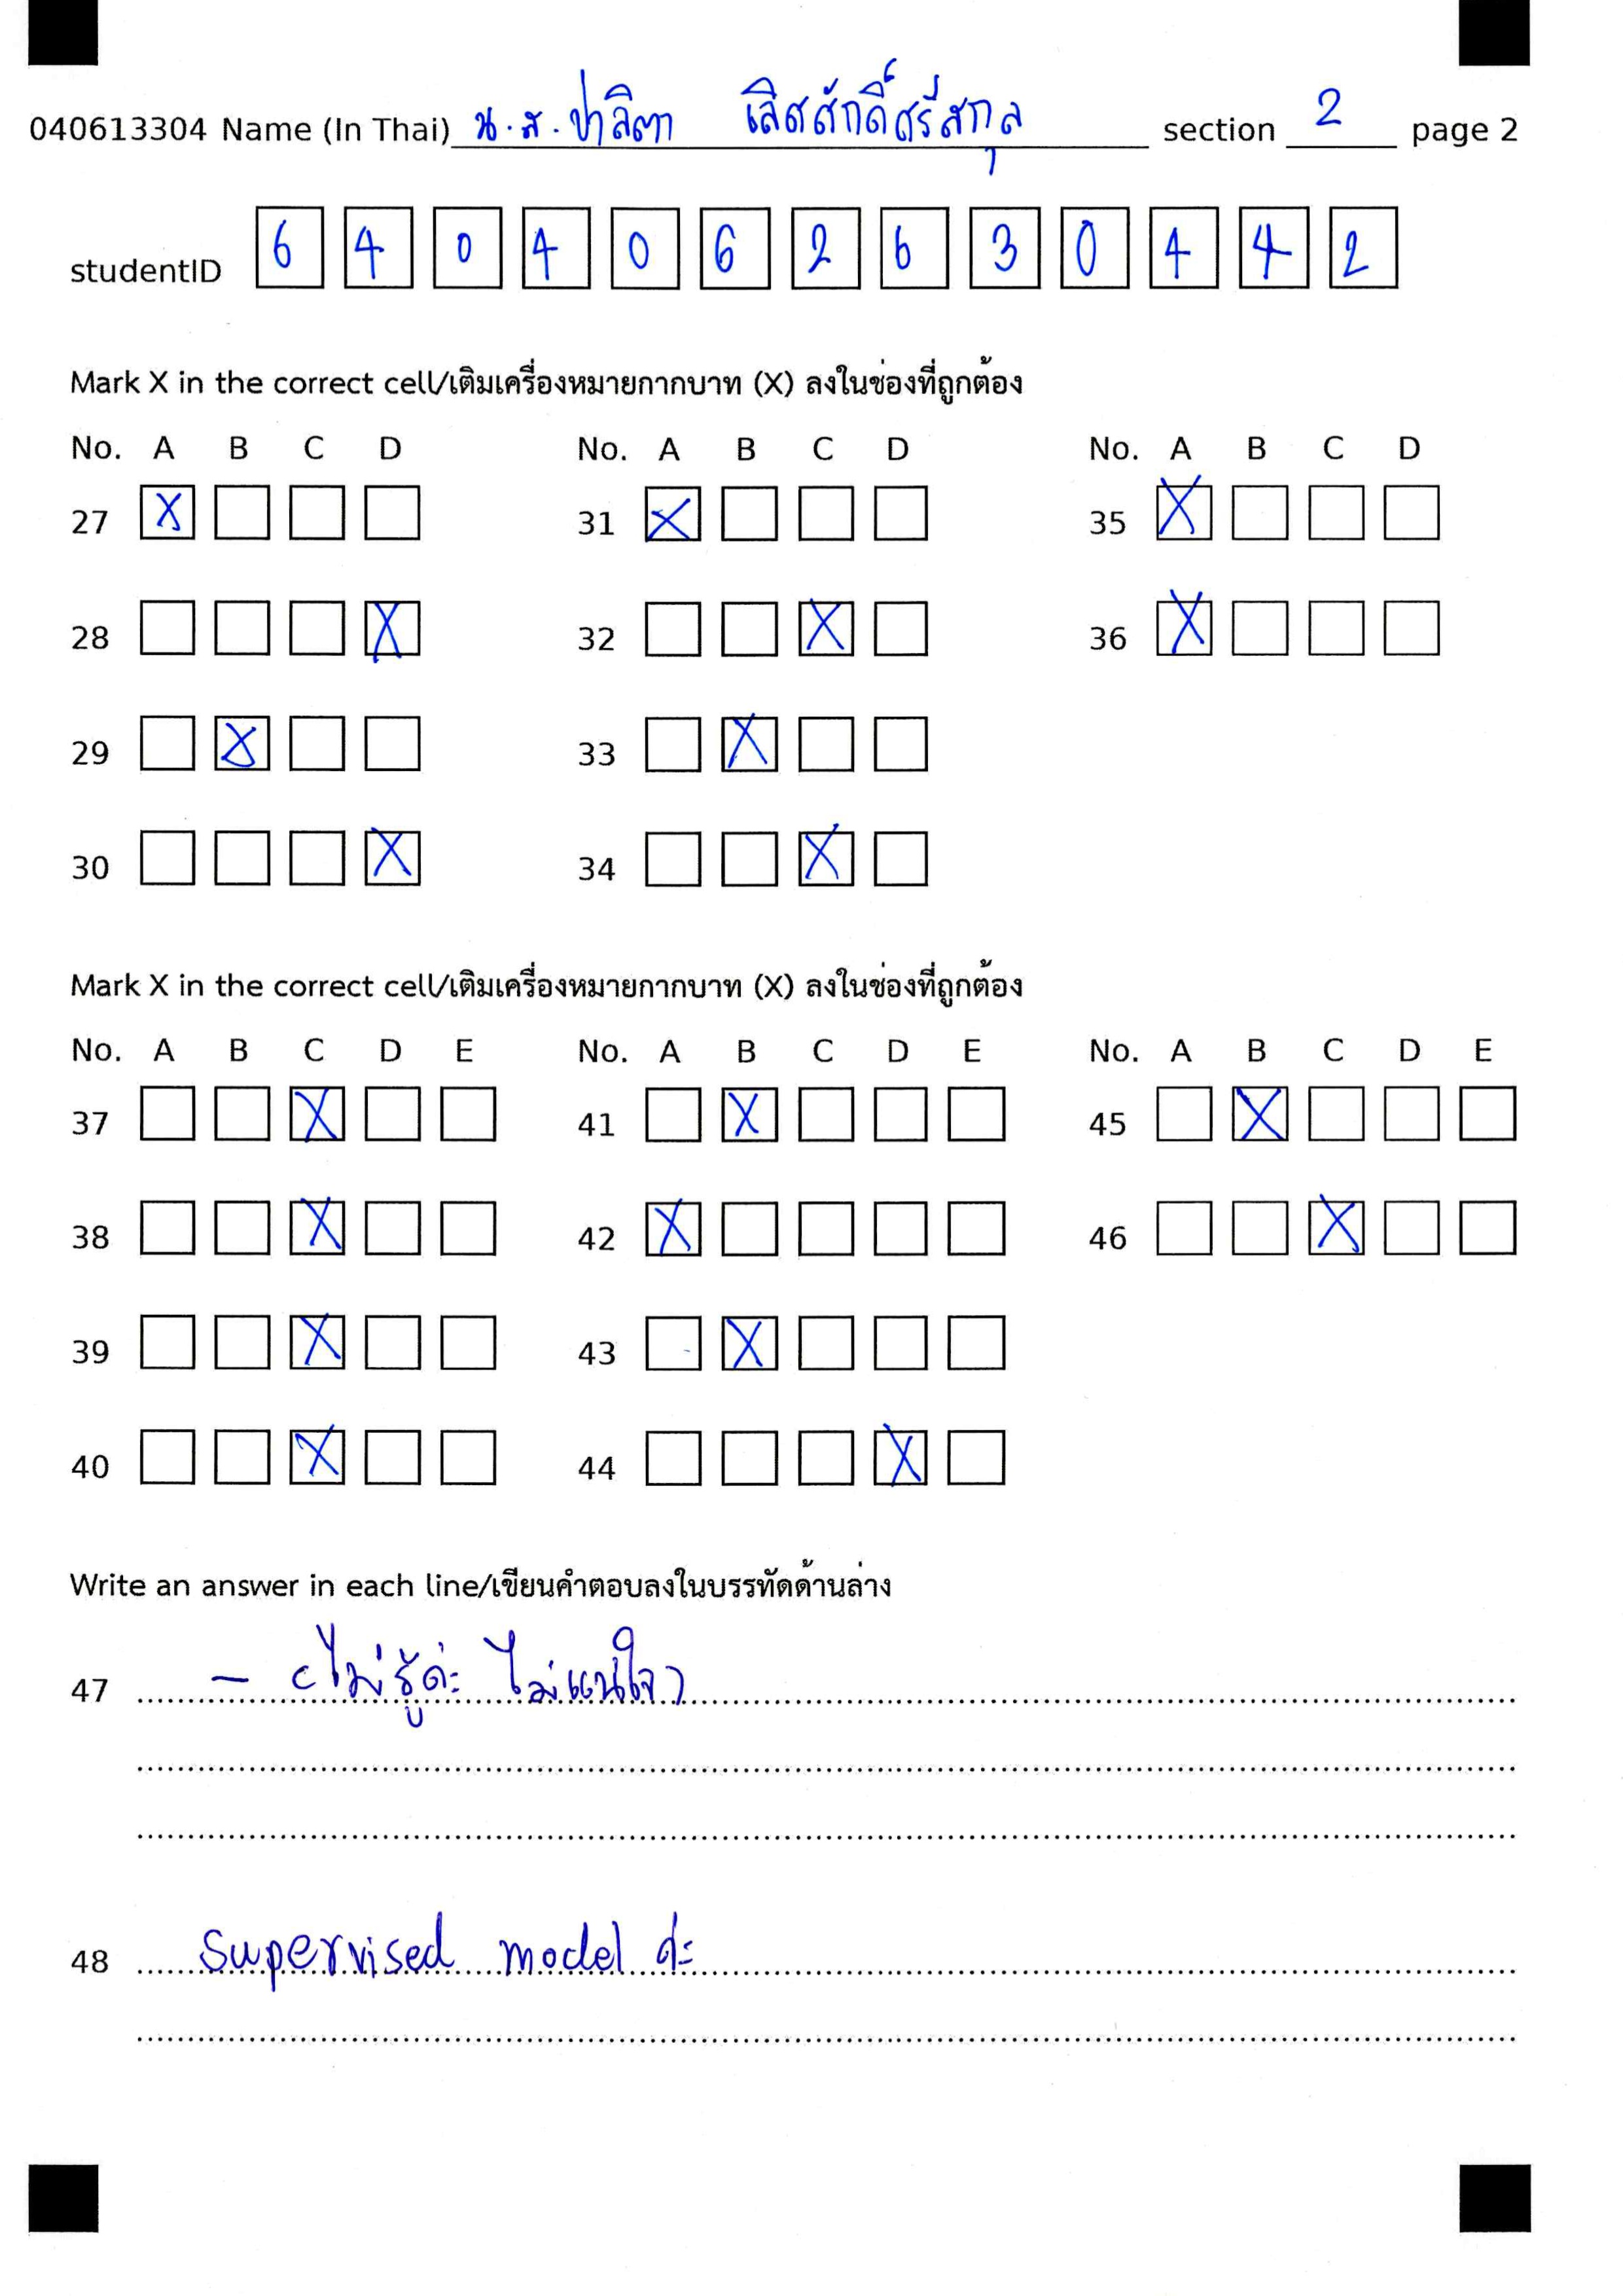 040613304 Name (In Thai) น.ส.ปาลิตา เลิศศักดิ์ศรีสกุล section 2 page 2
studentID 6 4 0 4 0 6 2 6 3 0 4 4 2
Mark X in the correct cell/เติมเครื่องหมายกากบาท (X) ลงในช่องที่ถูกต้อง
No. A B C D No. A B C D No. A B C D
27 X 31 X 35 X
28 X 32 X 36 X
29 X 33 X
30 X 34 X
Mark X in the correct cell/เติมเครื่องหมายกากบาท (X) ลงในช่องที่ถูกต้อง
No. A B C D E No. A B C D E No. A B C D E
37 X 41 X 45 X
38 X 42 X 46 X
39 X 43 X
40 X 44 X
Write an answer in each line/เขียนคำตอบลงในบรรทัดด้านล่าง
47 – (ไม่รู้ค่ะ ไม่แน่ใจ)
48 Supervised model ค่ะ